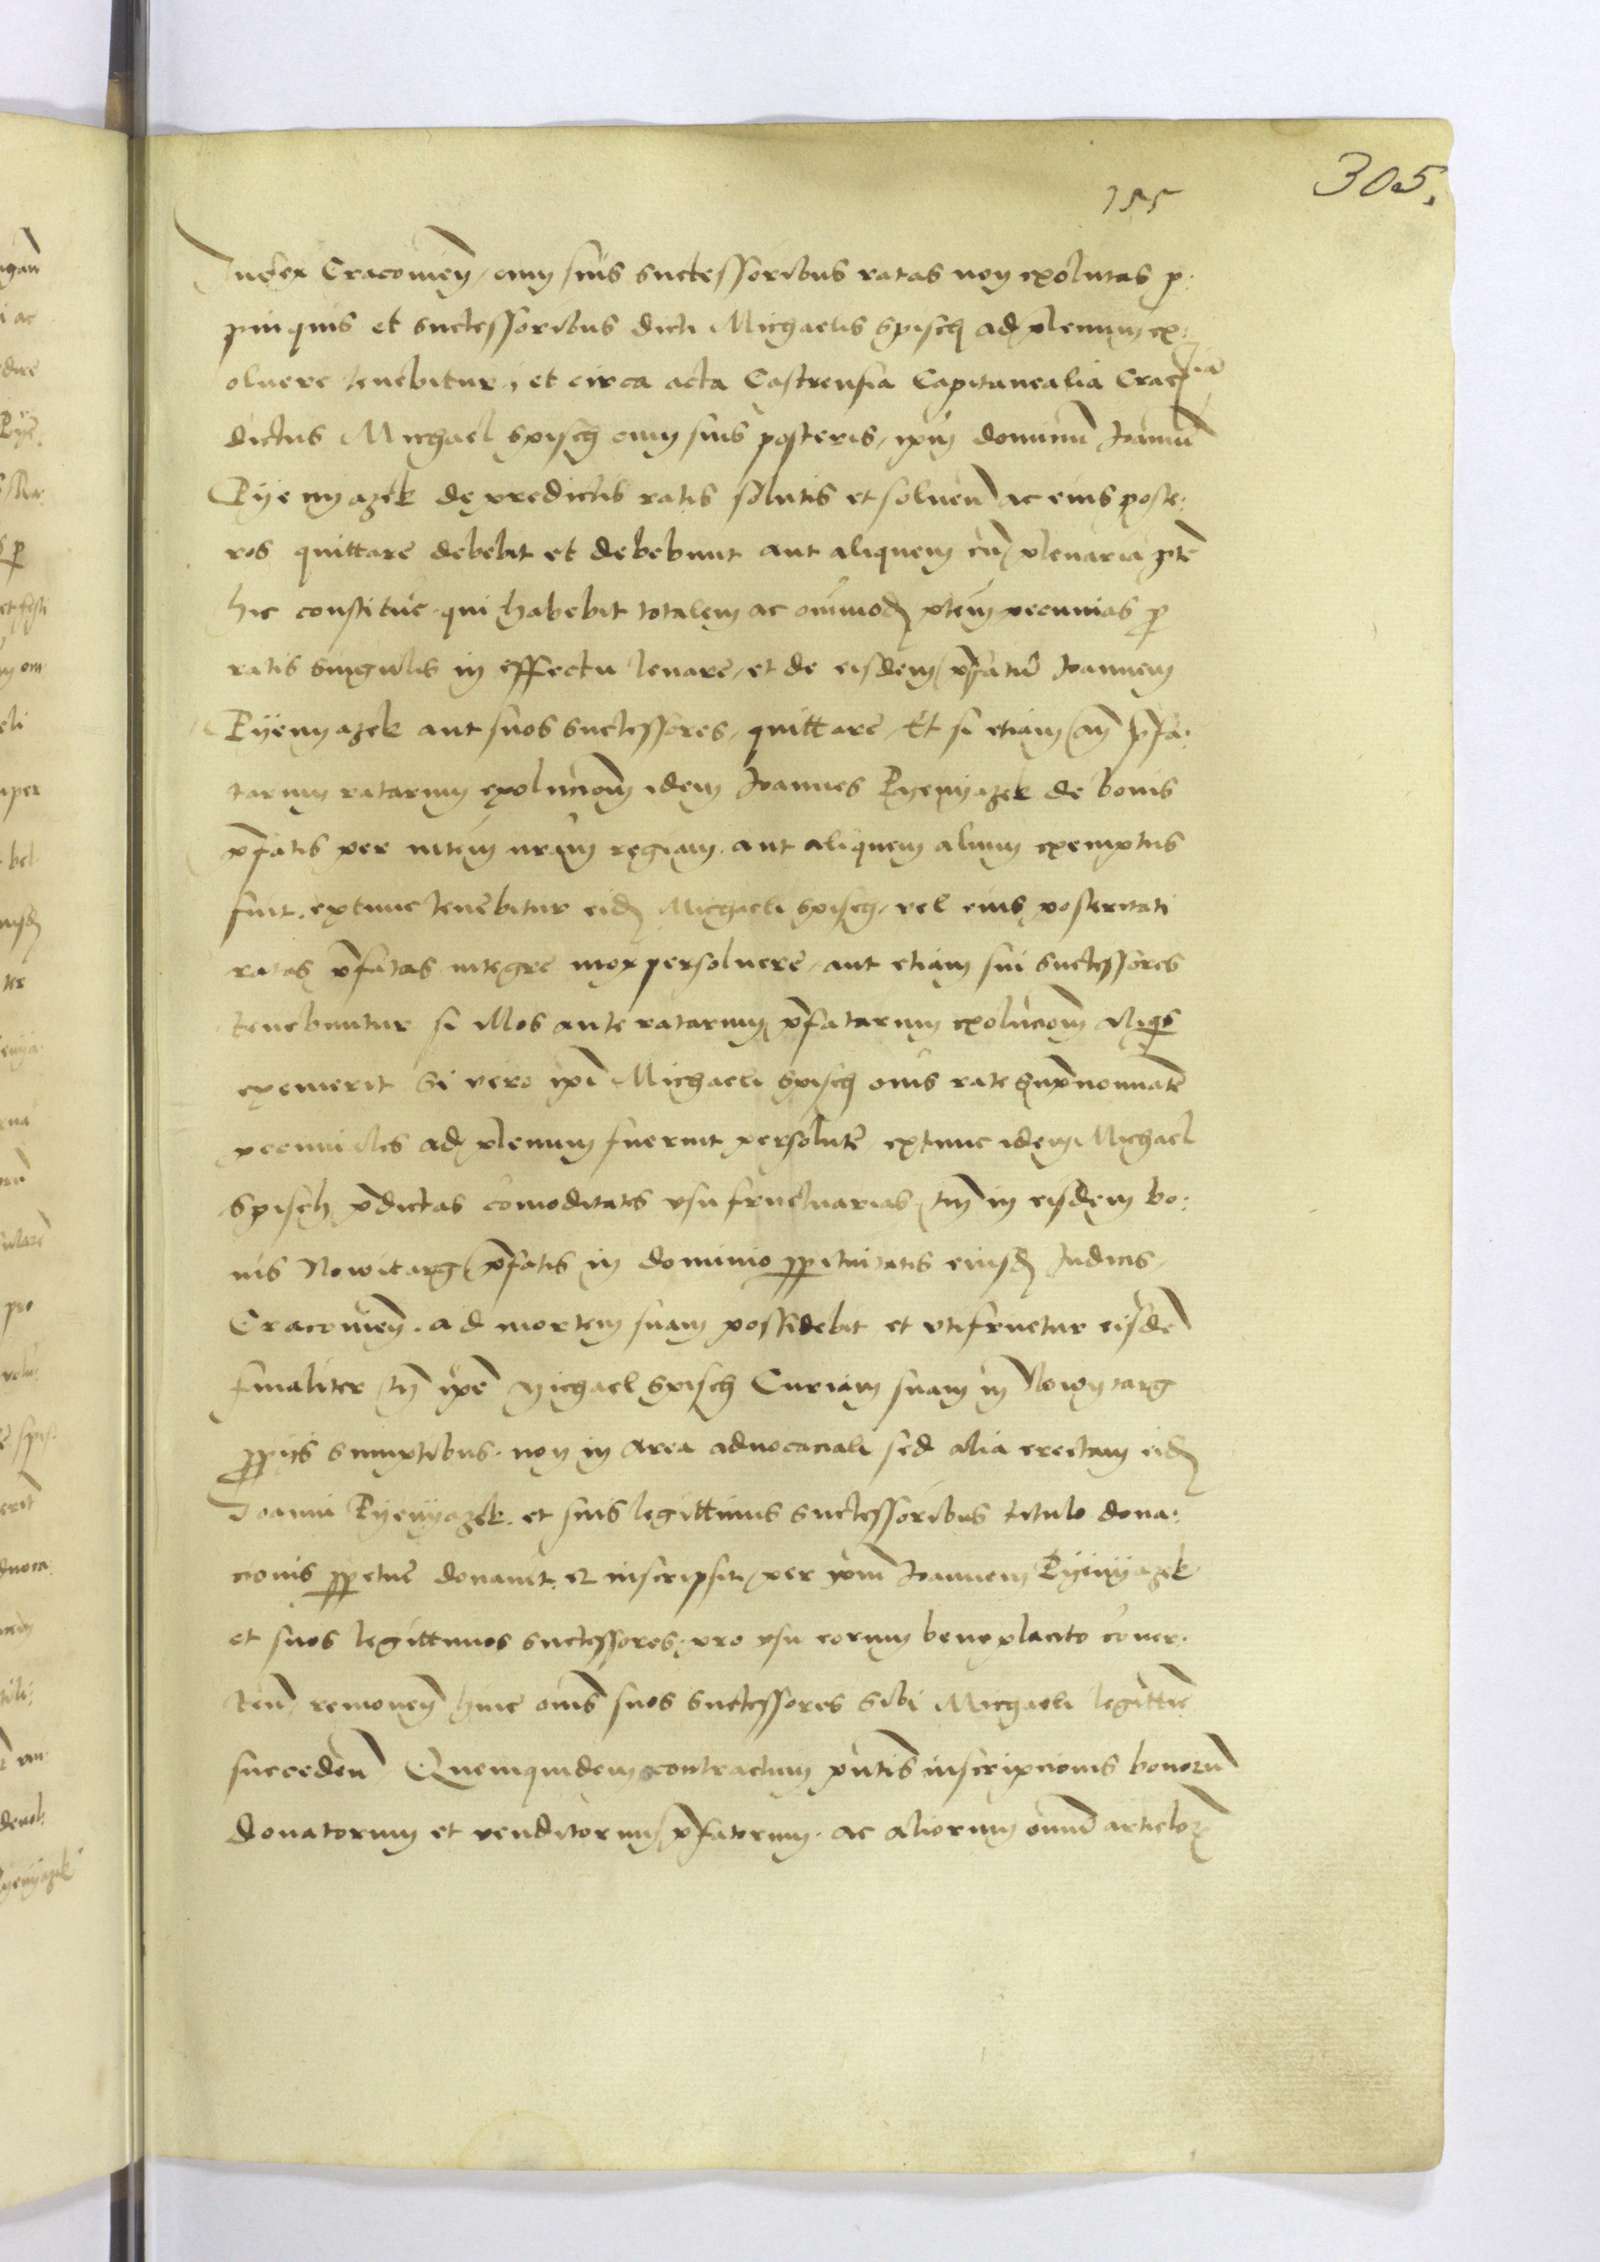 305.
155
Judex Cracovien, cum suis successoribus ratas non exolutas p:
pinquis et successoribus dicti Michaelis Spisch ad plenum ex:
oluere tenebitur, et circa acta Castrensia Capitanealia Crac
dictus Michael Spisch cum suis posteris, ipm dominum Joannem
Pyenyazek de predictis ratis solutis et soluend ac eius poste:
ros quittare debebit et debebunt aut aliquem cu plenaria pte
hic constitue. qui habebit totalem ac omnimod ptem pecunias p
ratis singulis in effectu leuare, et de eisdem pfatu Joannem
Pyenyazek aut suos successores, quittare, Et si etiam an pfa:
tarum ratarum exolucionem idem Joannes Pyenyazek de bonis
pfatis per mtem nram regiam. aut aliquem alium exemptus
fuit. extunc tenebitur eid Michaeli Spisch, vel eius posteritati
ratas pfatas integre mox persoluere, aut etiam sui successores
tenebuntur si illos ante ratarum pfatarum exolucionem aliqs
exemerit Si vero ipi Michaeli Spisch omis rate supnominate
pecuniales ad plenum fuerint persolute extunc idem Michael
Spisch pdictas comoditates vsufructuarias, tm in eisdem bo:
nis Nowitarg pfatis in dominio ppetuitatis eiusd Judicis,
Cracovien. ad mortem suam possidebit et vtifruetur eisdem
finaliter tn ipe Michael Spisch Curiam suam in Nowytarg
ppijs sumptibus. non in area aduocaciali sed alia erectam eid
Joanni Pyenyazek. et suis legittimis successoribus titulo dona:
cionis ppetue donauit. et inscripsit, per ipm Joannem Pyenyazek
et suos legittimos successores. pro vsu eorum beneplacito conuer:
tend, remouen hinc omes suos successores sibi Michaeli legittime
succeden Quemquidem contractum pntis inscripcionis bonorum
donatorum et venditorum pfatorum. ac aliorum omnium articlor